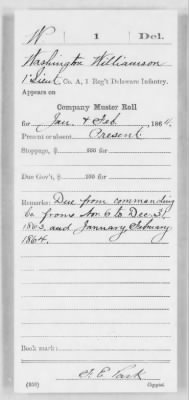 W | 1 | Del.
Washington Williamson
1" Lieut, Co. A, 1 Reg't Delaware Infantry.
Appears on
Company Muster Roll
for Jan & Feb, 1864.
Present or absent Present
Stoppage, $ 100 for
Due Gov't, $ 100 for
Remarks: Due from commanding
Co from Nov. 6 to Dec. 31
1863 and January, February
1864.
Book mark:
(358) Copyist.